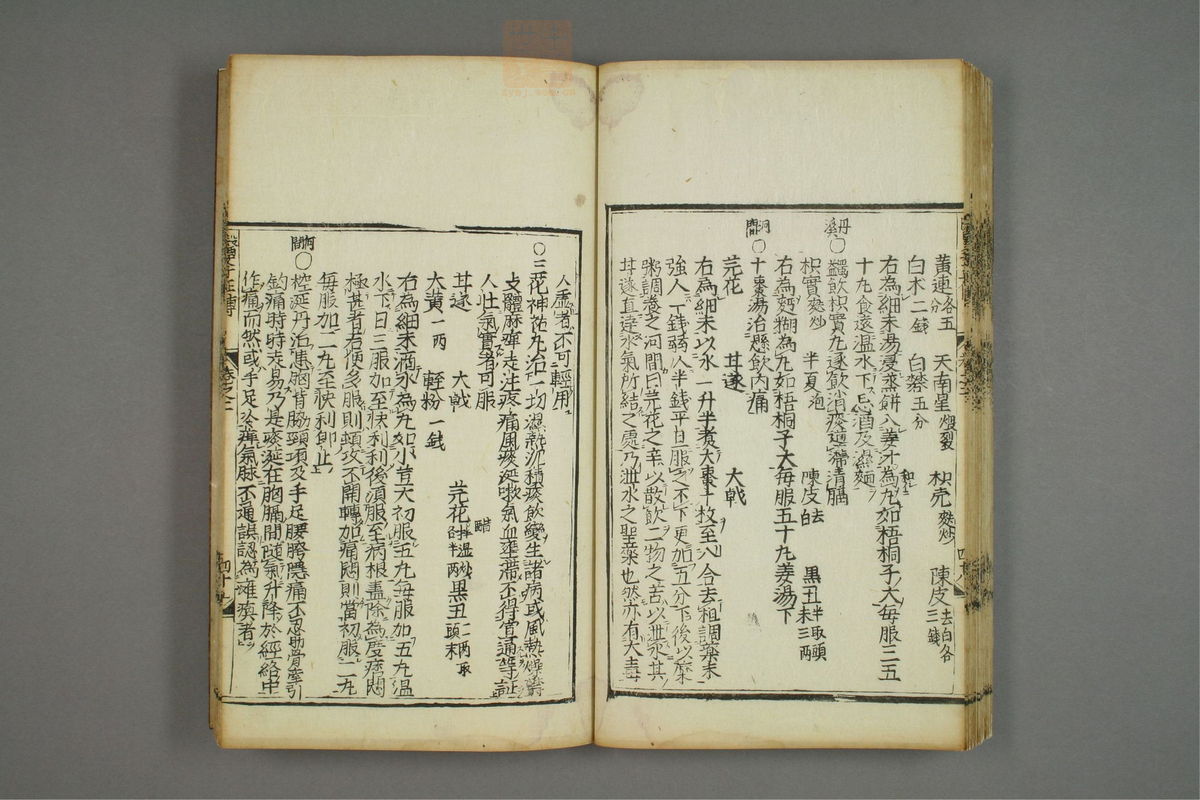 黃連各五分　天南星煨裂　枳壳麩炒　陳皮去白各三錢
白朮二錢　白礬五分
右為細末湯浸蒸餅入姜汁和丸為丸如梧桐子大每服三五
十丸食遠溫水下忌酒及濕麵
丹溪○蠲飲枳實丸逐飲消痰導滯清膈
枳實麩炒　半夏泡　陳皮去白　黑丑半取頭末三兩
右為麪糊為丸如梧桐子大每服五十丸姜湯下
河間○十棗湯治懸飲內痛
芫花　甘遂　大戟
右為細末以水一升半煮大棗十枚至八合去粗調藥末
強人一錢弱人半錢平旦服之不下更加五分下後以糜
粥調養之河間曰芫花之辛以散飲二物之苦以泄水其
甘遂直達水氣所結之處乃泄水之聖藥也然亦有大毒
人虛者不可輕用
○三花神祐丸治一切濕熱沉積痰飲變生諸病或風熱燥鬱
攴體麻痺走注疼痛風痰涎嗽氣血壅滯不得宣通等証
人壯氣實者可服
甘遂　大戟　芫花醋拌濕炒各半兩　黑丑二兩取頭末
大黃一兩　輕粉一錢
右為細末滴水為丸如小豆大初服五丸每服加五丸溫
水下日三服加至快利利後須服至病根盡除為度痞悶
極甚者若便多服則頓攻不開轉加痛悶則當初服二丸
每服加二丸至快利即止
河間○控涎丹治患胸背脇頸項及手足腰胯隱痛不忍助骨牽引
鈎痛時時走易乃是痰涎在胸膈間隨氣升降於經絡中
作痛而然或手足冷痺氣脉不通誤認為癱瘓者
四十